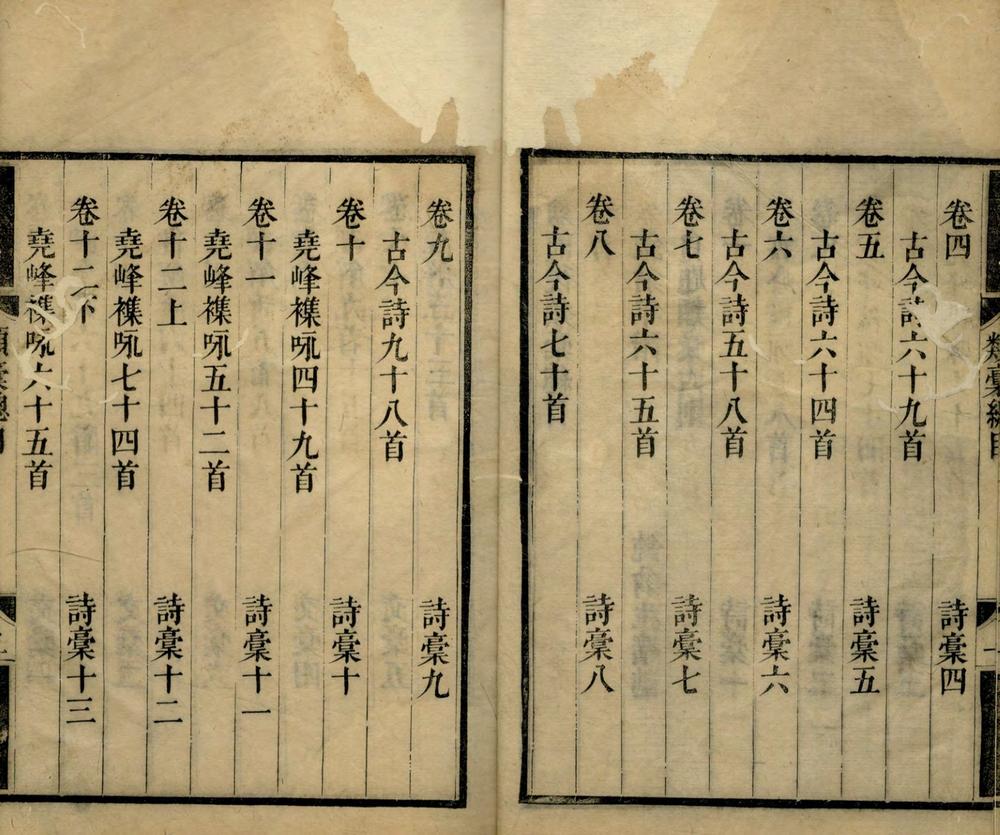 類稾總目
卷四 詩稾四
古今詩六十九首
卷五 詩稾五
古今詩六十四首
卷六 詩稾六
古今詩五十八首
卷七 詩稾七
古今詩六十五首
卷八 詩稾八
古今詩七十首
卷九 詩稾九
古今詩九十八首
卷十 詩稾十
堯峰襍咏四十九首
卷十一 詩稾十一
堯峰襍咏五十二首
卷十二上 詩稾十二
堯峰襍咏七十四首
卷十二下 詩稾十三
堯峰襍咏六十五首
類稾總目